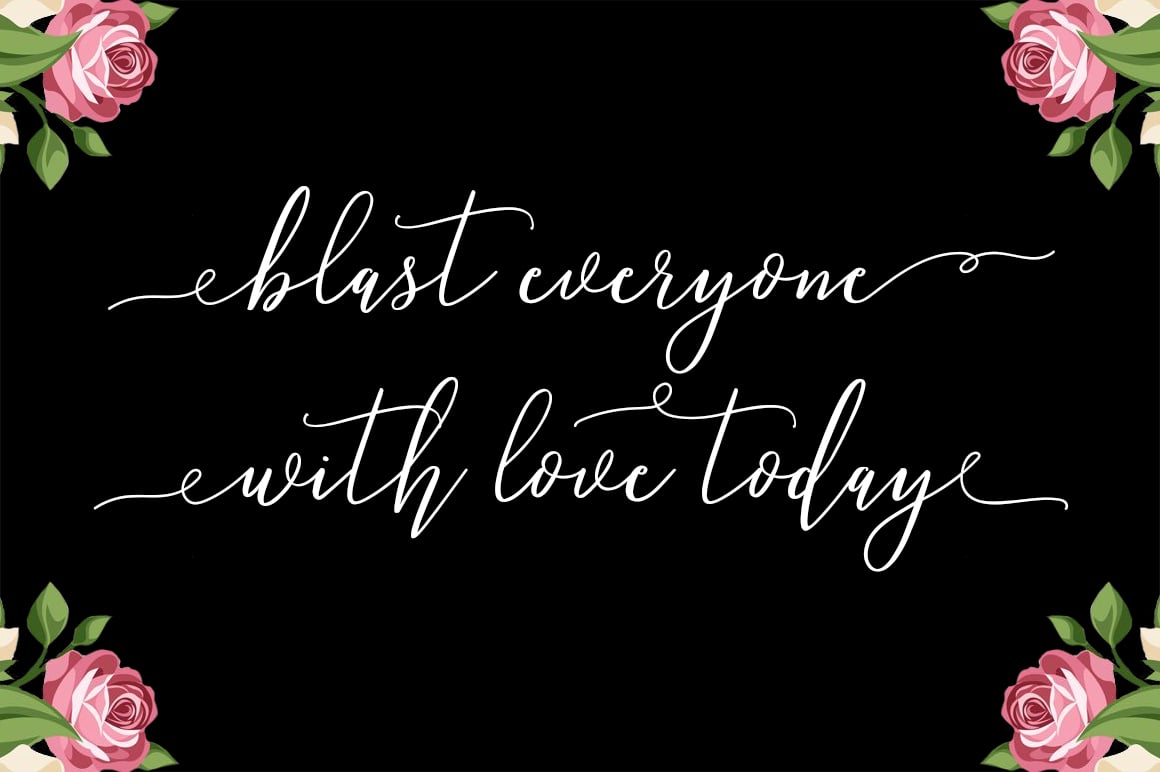 blast everyone
with love today